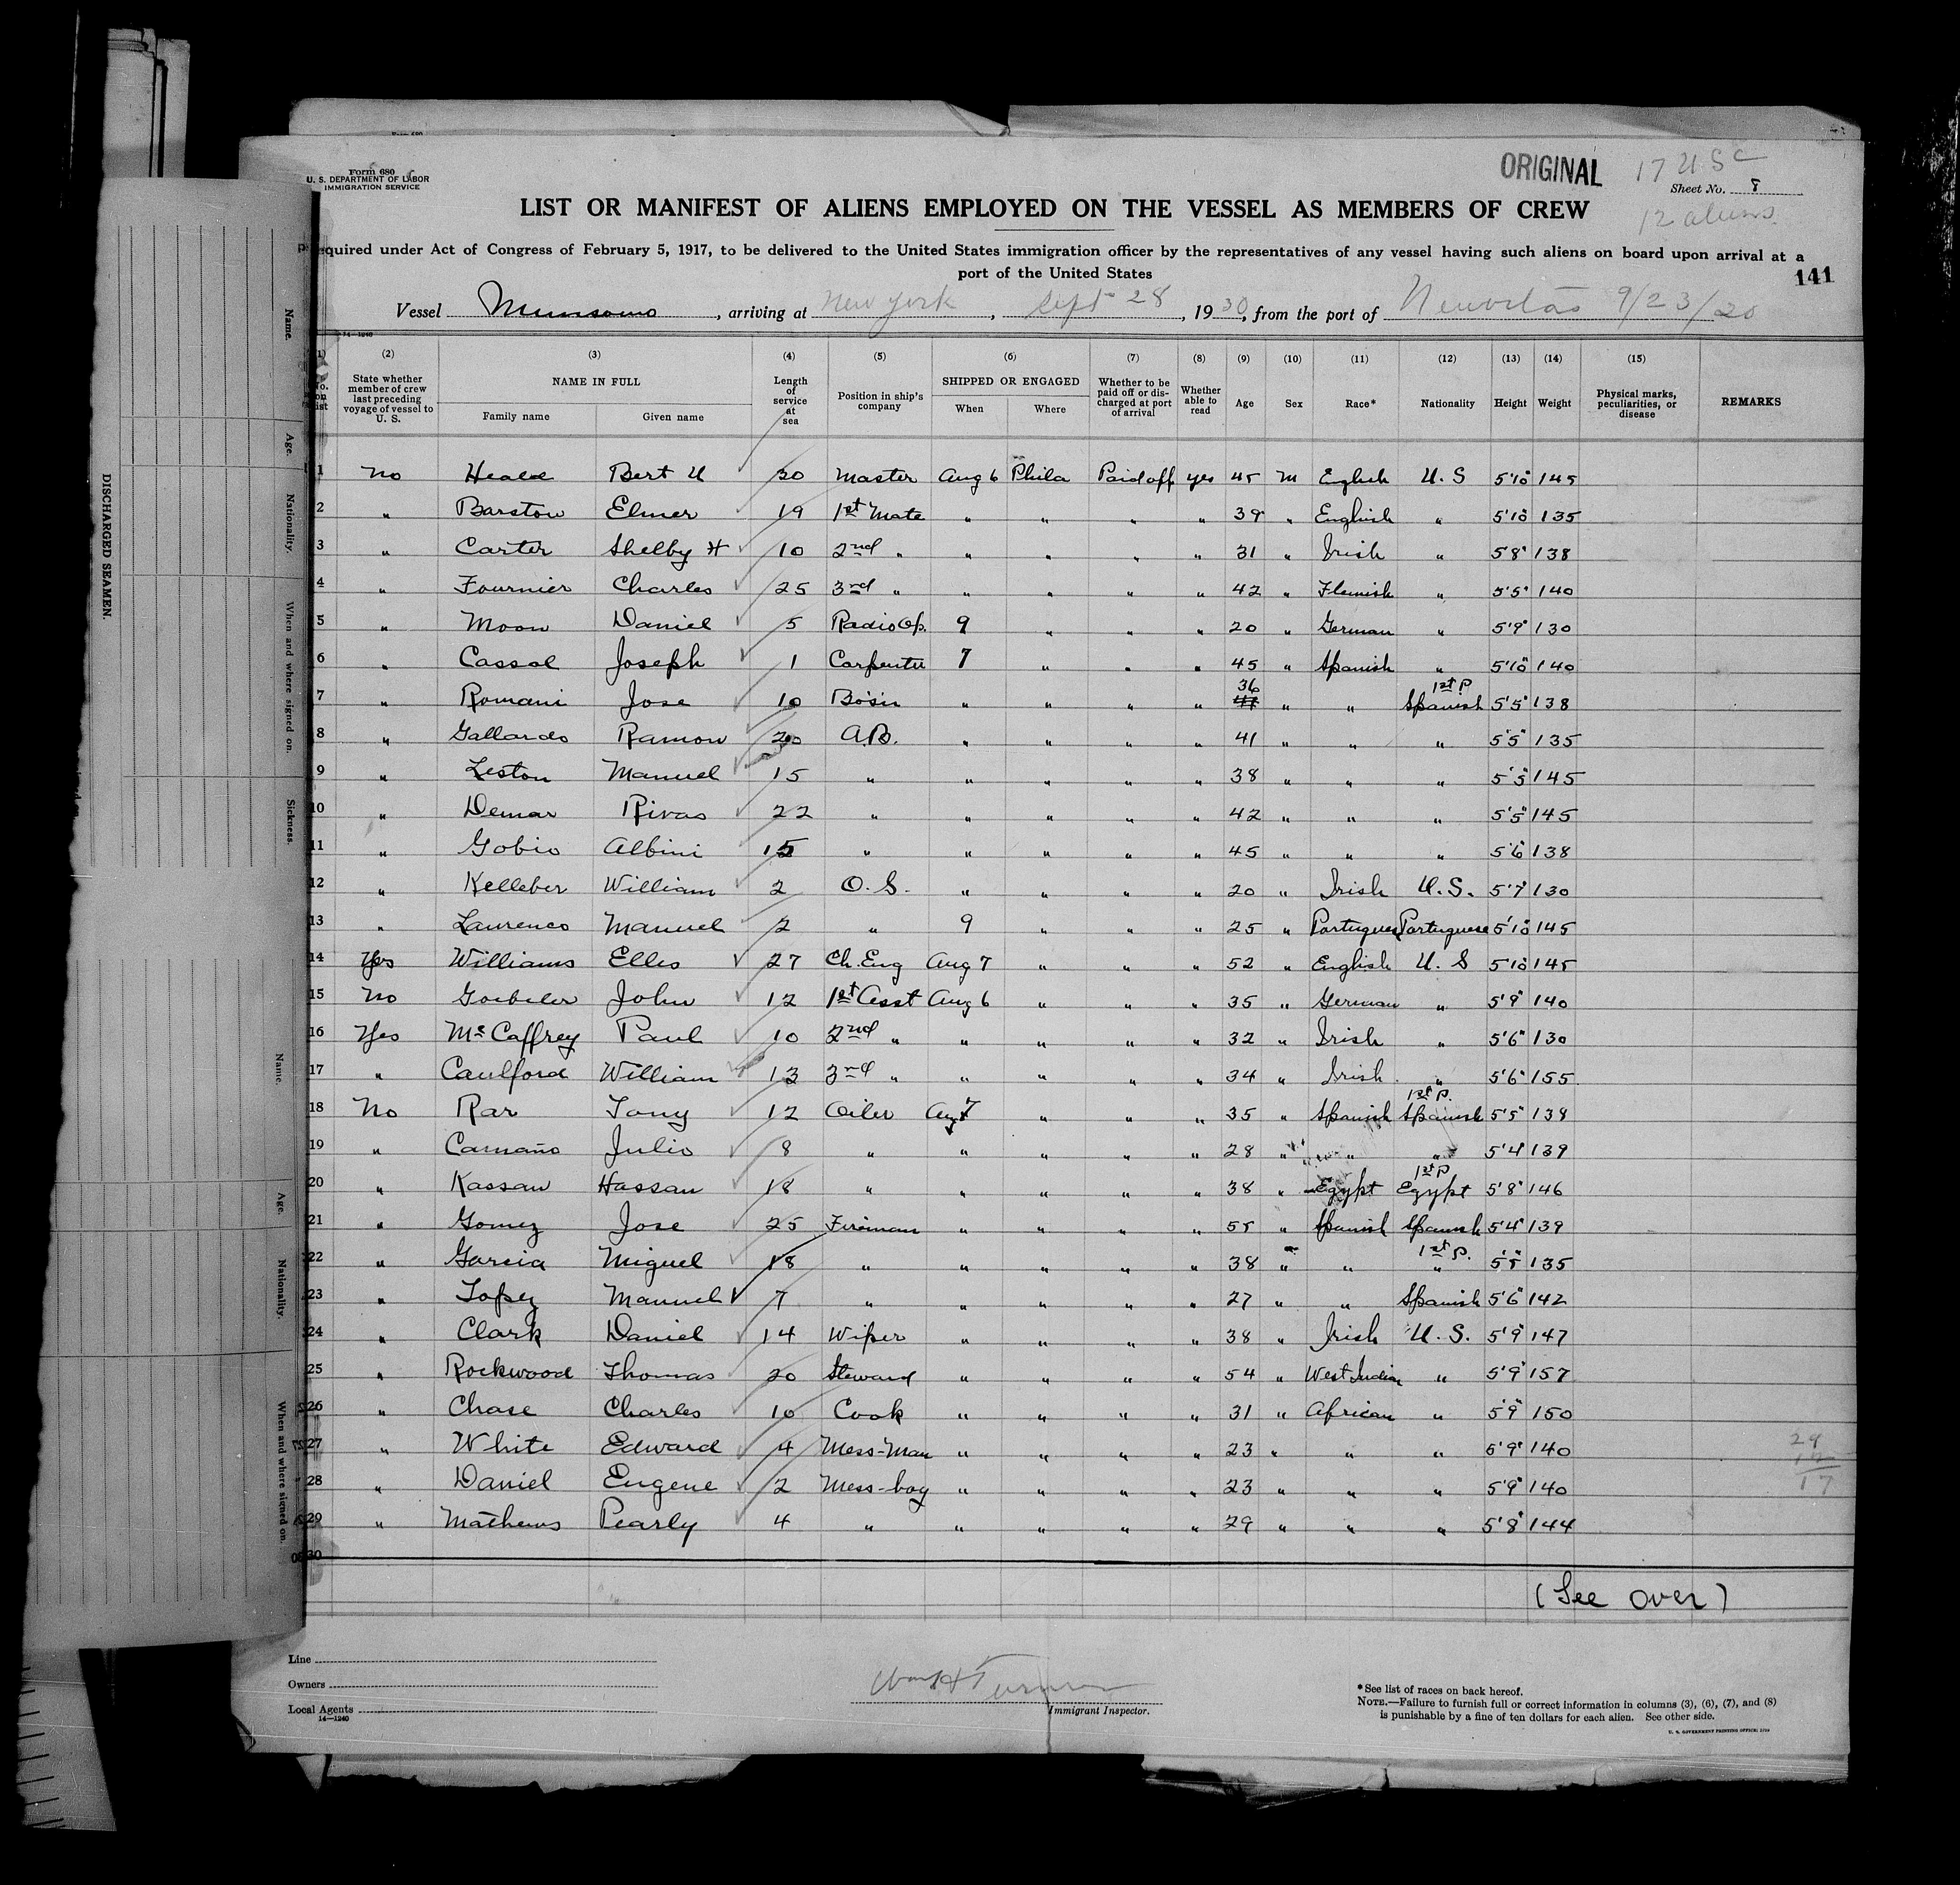 Form 680
U. S. DEPARTMENT OF LABOR
IMMIGRATION SERVICE
ORIGINAL
17 U.S.C
Sheet No. 8
12 aliens
LIST OR MANIFEST OF ALIENS EMPLOYED ON THE VESSEL AS MEMBERS OF CREW
quired under Act of Congress of February 5, 1917, to be delivered to the United States immigration officer by the representatives of any vessel having such aliens on board upon arrival at a
port of the United States
141
Vessel Munsomo, arriving at New York, Sept 28, 1930, from the port of Nuevitas 9/23/20
14—1240
(2) (3) (4) (5) (6) (7) (8) (9) (10) (11) (12) (13) (14) (15)
No. on list State whether member of crew last preceding voyage of vessel to U. S. NAME IN FULL Family name Given name Length of service at sea Position in ship's company SHIPPED OR ENGAGED When Where Whether to be paid off or discharged at port of arrival Whether able to read Age Sex Race* Nationality Height Weight Physical marks, peculiarities, or disease REMARKS
1 No Heald Bert U 30 Master Aug 6 Phila Paid off yes 45 M English U. S 5'10" 145
2 " Barstow Elmer 19 1st Mate " " " " 39 " English " 5'10" 135
3 " Carter Shelby H 10 2nd " " " " " 31 " Irish " 5'8" 138
4 " Fournier Charles 25 3rd " " " " " 42 " Flemish " 5'5" 140
5 " Moon Daniel 5 Radio Op. 9 " " " 20 " German " 5'9" 130
6 " Cassal Joseph 1 Carpenter 7 " " " 45 " Spanish " 5'10" 140
7 " Romani Jose 10 Bosin " " " " 36 " " 1st P Spanish 5'5" 138
8 " Gallardo Ramon 20 A.B. " " " " 41 " " " 5'5" 135
9 " Leston Manuel 15 " " " " " 38 " " " 5'5" 145
10 " Demar Rivas 22 " " " " " 42 " " " 5'5" 145
11 " Gobio Albini 15 " " " " " 45 " " " 5'6" 138
12 " Kelleher William 2 O. S. " " " " 20 " Irish U. S. 5'7" 130
13 " Laurenco Manuel 2 " 9 " " " 25 " Portuguese Portuguese 5'10" 145
14 Yes Williams Ellis 27 Ch. Eng Aug 7 " " " 52 " English U. S 5'10" 145
15 No Goebeler John 12 1st Asst Aug 6 " " " 35 " German " 5'9" 140
16 Yes McCaffrey Paul 10 2nd " " " " " 32 " Irish " 5'6" 130
17 " Caulford William 13 3rd " " " " " 34 " Irish " 5'6" 155
18 No Rar Tony 12 Oiler Aug 7 " " " 35 " Spanish 1st P. Spanish 5'5" 138
19 " Camaño Julio 8 " " " " " 28 " " " 5'4" 139
20 " Kassan Hassan 18 " " " " " 38 " Egypt 1st P Egypt 5'8" 146
21 " Gomez Jose 25 Fireman " " " " 55 " Spanish Spanish 5'4" 139
22 " Garcia Miguel 18 " " " " " 38 " " 1st P. " 5'5" 135
23 " Lopez Manuel 7 " " " " " 27 " " Spanish 5'6" 142
24 " Clark Daniel 14 Wiper " " " " 38 " Irish U. S. 5'9" 147
25 " Rockwood Thomas 20 Steward " " " " 54 " West Indian " 5'9" 157
26 " Chase Charles 10 Cook " " " " 31 " African " 5'9" 150
27 " White Edward 4 Mess-Man " " " " 23 " " " 5'9" 140
28 " Daniel Eugene 2 Mess-boy " " " " 23 " " " 5'9" 140
29 " Mathews Pearly 4 " " " " " 29 " " " 5'8" 144
30
29
12
17
(See over)
Line
Owners
Local Agents
14—1240
Immigrant Inspector.
*See list of races on back hereof.
NOTE.—Failure to furnish full or correct information in columns (3), (6), (7), and (8)
is punishable by a fine of ten dollars for each alien. See other side.
U. S. GOVERNMENT PRINTING OFFICE
DISCHARGED SEAMEN.
Name.
Age.
Nationality.
When and where signed on.
Sickness.
Name.
Age.
Nationality.
When and where signed on.